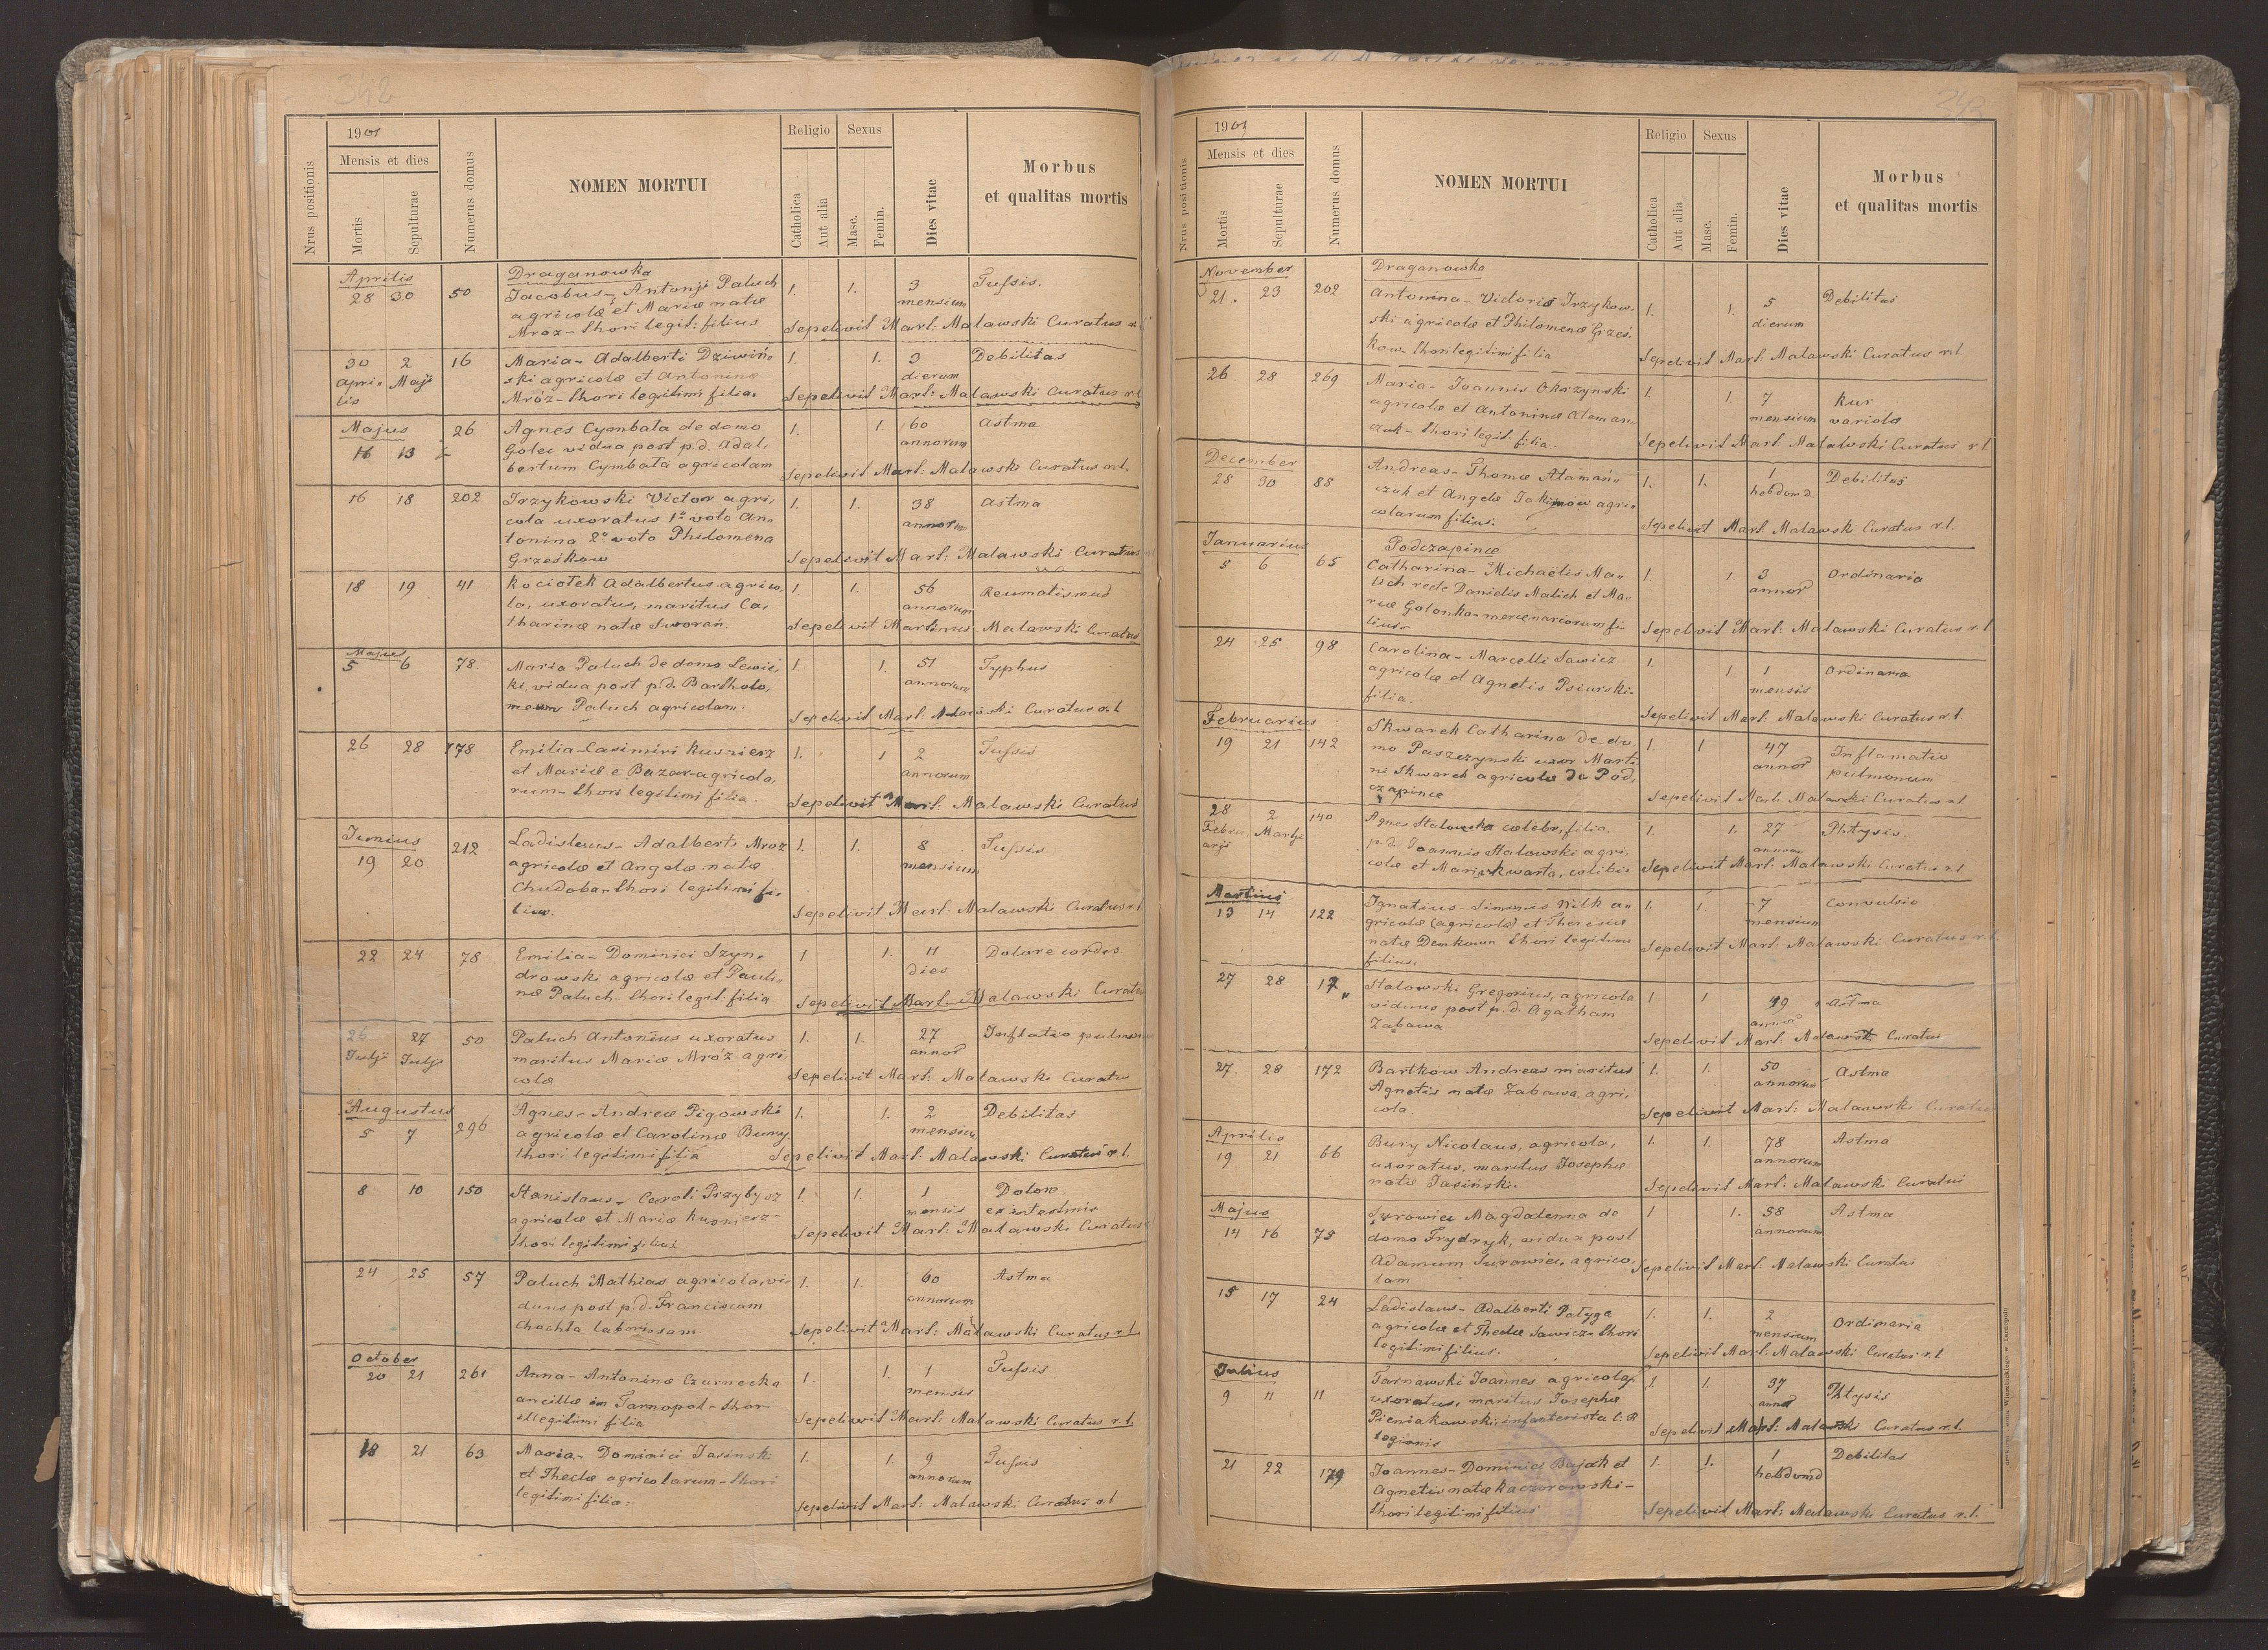 342
1901
Religio Sexus
Mensis et dies
Nrus positionis
Mortis
Sepulturae
Numerus domus
NOMEN MORTUI
Catholica
Aut alia
Masc.
Femin.
Dies vitae
Morbus
et qualitas mortis
Aprilis
Draganowka
28 30 50 Jacobus - Antonji Paluch 1. 1. 3 Tussis.
agricolæ et Mariæ natæ mensium
Mróz - thori legit: filius Sepelivit Mart: Malawski Curatus r.l.
30 2 16 Maria - Adalberti Dziwiń- 1. 1. 3 Debilitas
Apri- Maji ski agricolæ et Antoninæ dierum
lis Mróz - thori legitimi filia. Sepelivit Mart: Malawski Curatus r.l.
Majus
26 Agnes Cymbała de domo 1. 1. 60 Astma
11 13 Golec vidua post p.d. Adal- annorum
bertum Cymbała agricolam Sepelivit Mart: Malawski Curatus r.l.
16 18 202 Irzykowski Victor agri- 1. 1. 38 Astma
cola uxoratus 1º voto An- annorum
tonina 2º voto Philomena
Grześkow Sepelivit Mart: Malawski Curatus
18 19 41 Kociołek Adalbertus agrico- 1. 1. 56 Reumatismus
la, uxoratus, maritus Ca- annorum
tharinæ natæ Sworań. Sepelivit Martinus Malawski Curatus
Majus
5 6 78 Maria Paluch de domo Lewic- 1. 1. 51 Typhus
ki, vidua post p.d. Bartholo- annorum
meum Paluch agricolam. Sepelivit Mart: Malawski Curatus r.l.
26 28 178 Emilia - Casimiri Kusnierz 1. 1 2 Tussis
et Mariæ e Bazar - agricola- annorum
rum - thori legitimi filia. Sepelivit Mart: Malawski Curatus
Junius
19 20 212 Ladislaus - Adalberti Mroz 1. 1. 8 Tussis
agricolæ et Angelæ natæ mensium
Chudoba - thori legitimi fi-
lius. Sepelivit Mart: Malawski Curatus r.l.
22 24 78 Emilia - Dominici Szyn- 1 1. 11 Dolore cordis
drowski agricolæ et Pauli- dies
næ Paluch - thori legit: filia Sepelivit Mart: Malawski Curatus
26 27 50 Paluch Antonius uxoratus 1. 1. 27
Julji Julji maritus Mariæ Mróz agri- annor
colæ Sepelivit Mart: Malawski Curatus
Augustus
5 7 296 Agnes - Andreæ Pigowski 1. 1. 2 Debilitas
agricolæ et Carolinæ Bury mensium
thori legitimi filia Sepelivit Mart: Malawski Curatus r.l.
8 10 150 Stanislaus - Caroli Przybysz 1. 1. 1 Dolore
agricolæ et Mariæ Kusnierz - mensis ex intestinis
thori legitimi filius Sepelivit Mart: Malawski Curatus
24 25 57 Paluch Mathias agricola, vi- 1. 1. 60 Astma
duus post p.d. Franciscam annorum
Chochła laboriosam. Sepelivit Mart: Malawski Curatus r.l.
October
20 21 261 Anna - Antoninæ Czarnecka 1. 1. 1 Tussis
ancillæ in Tarnopol - thori mensis
illegitimi filia Sepelivit Mart: Malawski Curatus r.l.
18 21 63 Maria - Dominici Jasinski 1. 1. 9 Tussis
et Theclæ agricolarum - thori annorum
legitimi filia. Sepelivit Mart: Malawski Curatus r.l.
343
1901
Religio Sexus
Mensis et dies
Nrus positionis
Mortis
Sepulturae
Numerus domus
NOMEN MORTUI
Catholica
Aut alia
Masc.
Femin.
Dies vitae
Morbus
et qualitas mortis
November Draganowka
21. 23 202 Antonina - Victoris Irzykow- 1. 1. 5 Debilitas
ski agricolæ et Philomenæ Grześ- dierum
kow - thori legitimi filia Sepelivit Mart: Malawski Curatus r.l.
26 28 269 Maria - Joannis Okrzynski 1. 1. 7 Kur
agricolæ et Antoninæ Ataman- mensium variola
czuk - thori legit. filia. Sepelivit Mart: Malawski Curatus r.l.
December
28 30 88 Andreas - Thomæ Atamań- 1. 1. 1 Debilitas
czuk et Angelæ Jakimow agri- hebdomd
colarum filius. Sepelivit Mart: Malawski Curatus r.l.
Januarius
Podczapince
5 6 65 Catharina - Michaëlis Ma- 1. 1. 3 Ordinaria
lich recte Danielis Malich et Ma- annor
riæ Golonka - mercenareorum fi
lius. Sepelivit Mart: Malawski Curatus r.l.
24 25 98 Carolina - Marcelli Sawicz 1. 1. 1 Ordinaria
agricolæ et Agnetis Psiurski - mensis
filia. Sepelivit Mart: Malawski Curatus r.l.
Februarius
19 21 142 Skwarek Catharina de do- 1. 1 47 Inflamatio
mo Paszczynski uxor Marti- annor pulmonum
ni Skwarek agricolæ de Pod-
czapince Sepelivit Mart: Malawski Curatus r.l.
28 2 140 Agnes Stalowska celebs, filia, 1. 1. 27 Phtysis.
Febru- Martji p.d. Joannis Stalowski agri- annorum
arji colæ et Mariæ Kwarta, cælibis Sepelivit Mart: Malawski Curatus r.l.
Martius
13 14 122 Ignatius - Simonis Wilk a- 1. 1. 7 Convulsio
gricolæ (agricolæ) et Theresiæ mensium
natæ Demkown thori legitimi
filius. Sepelivit Mart: Malawski Curatus r.l.
27 28 17 Stalowski Gregorius, agricola 1 1 49 Astma
viduus post p.d. Agatham annor
Zabawa Sepelivit Mart: Malawski Curatus
27. 28 172 Bartkow Andreas maritus 1. 1. 50 Astma
Agnetis natæ Zabawa, agri- annorum
cola. Sepelivit Mart: Malawski Curatus
Aprilis
19 21 66 Bury Nicolaus, agricola, 1. 1. 78 Astma
uxoratus, maritus Josephæ annorum
natæ Jasiński. Sepelivit Mart: Malawski Curatus
Majus
14 16 75 Jurowicz Magdalenna de 1 1. 58 Astma
domo Frydryk, vidua post annorum
Adamum Jurowicz, agrico-
lam Sepelivit Mart: Malawski Curatus
15 17 24 Ladislaus - Adalberti Patyga 1. 1. 2 Ordinaria
agricolæ et Theclæ Sawicz - thori mensium
legitimi filius. Sepelivit Mart: Malawski Curatus r.l.
Julius
9 11 11 Tarnawski Joannes agricola, 1 1. 37 Phtysis
uxoratus, maritus Josephæ annor
Pieniakowski, infacterista C: R
legionis Sepelivit Mart: Malawski Curatus r.l.
21 22 179 Joannes - Dominici Bajak et 1. 1. 1 Debilitas
Agnetis natæ Kaczorowski - hebdomd
thori legitimi filius Sepelivit Mart: Malawski Curatus r.l.